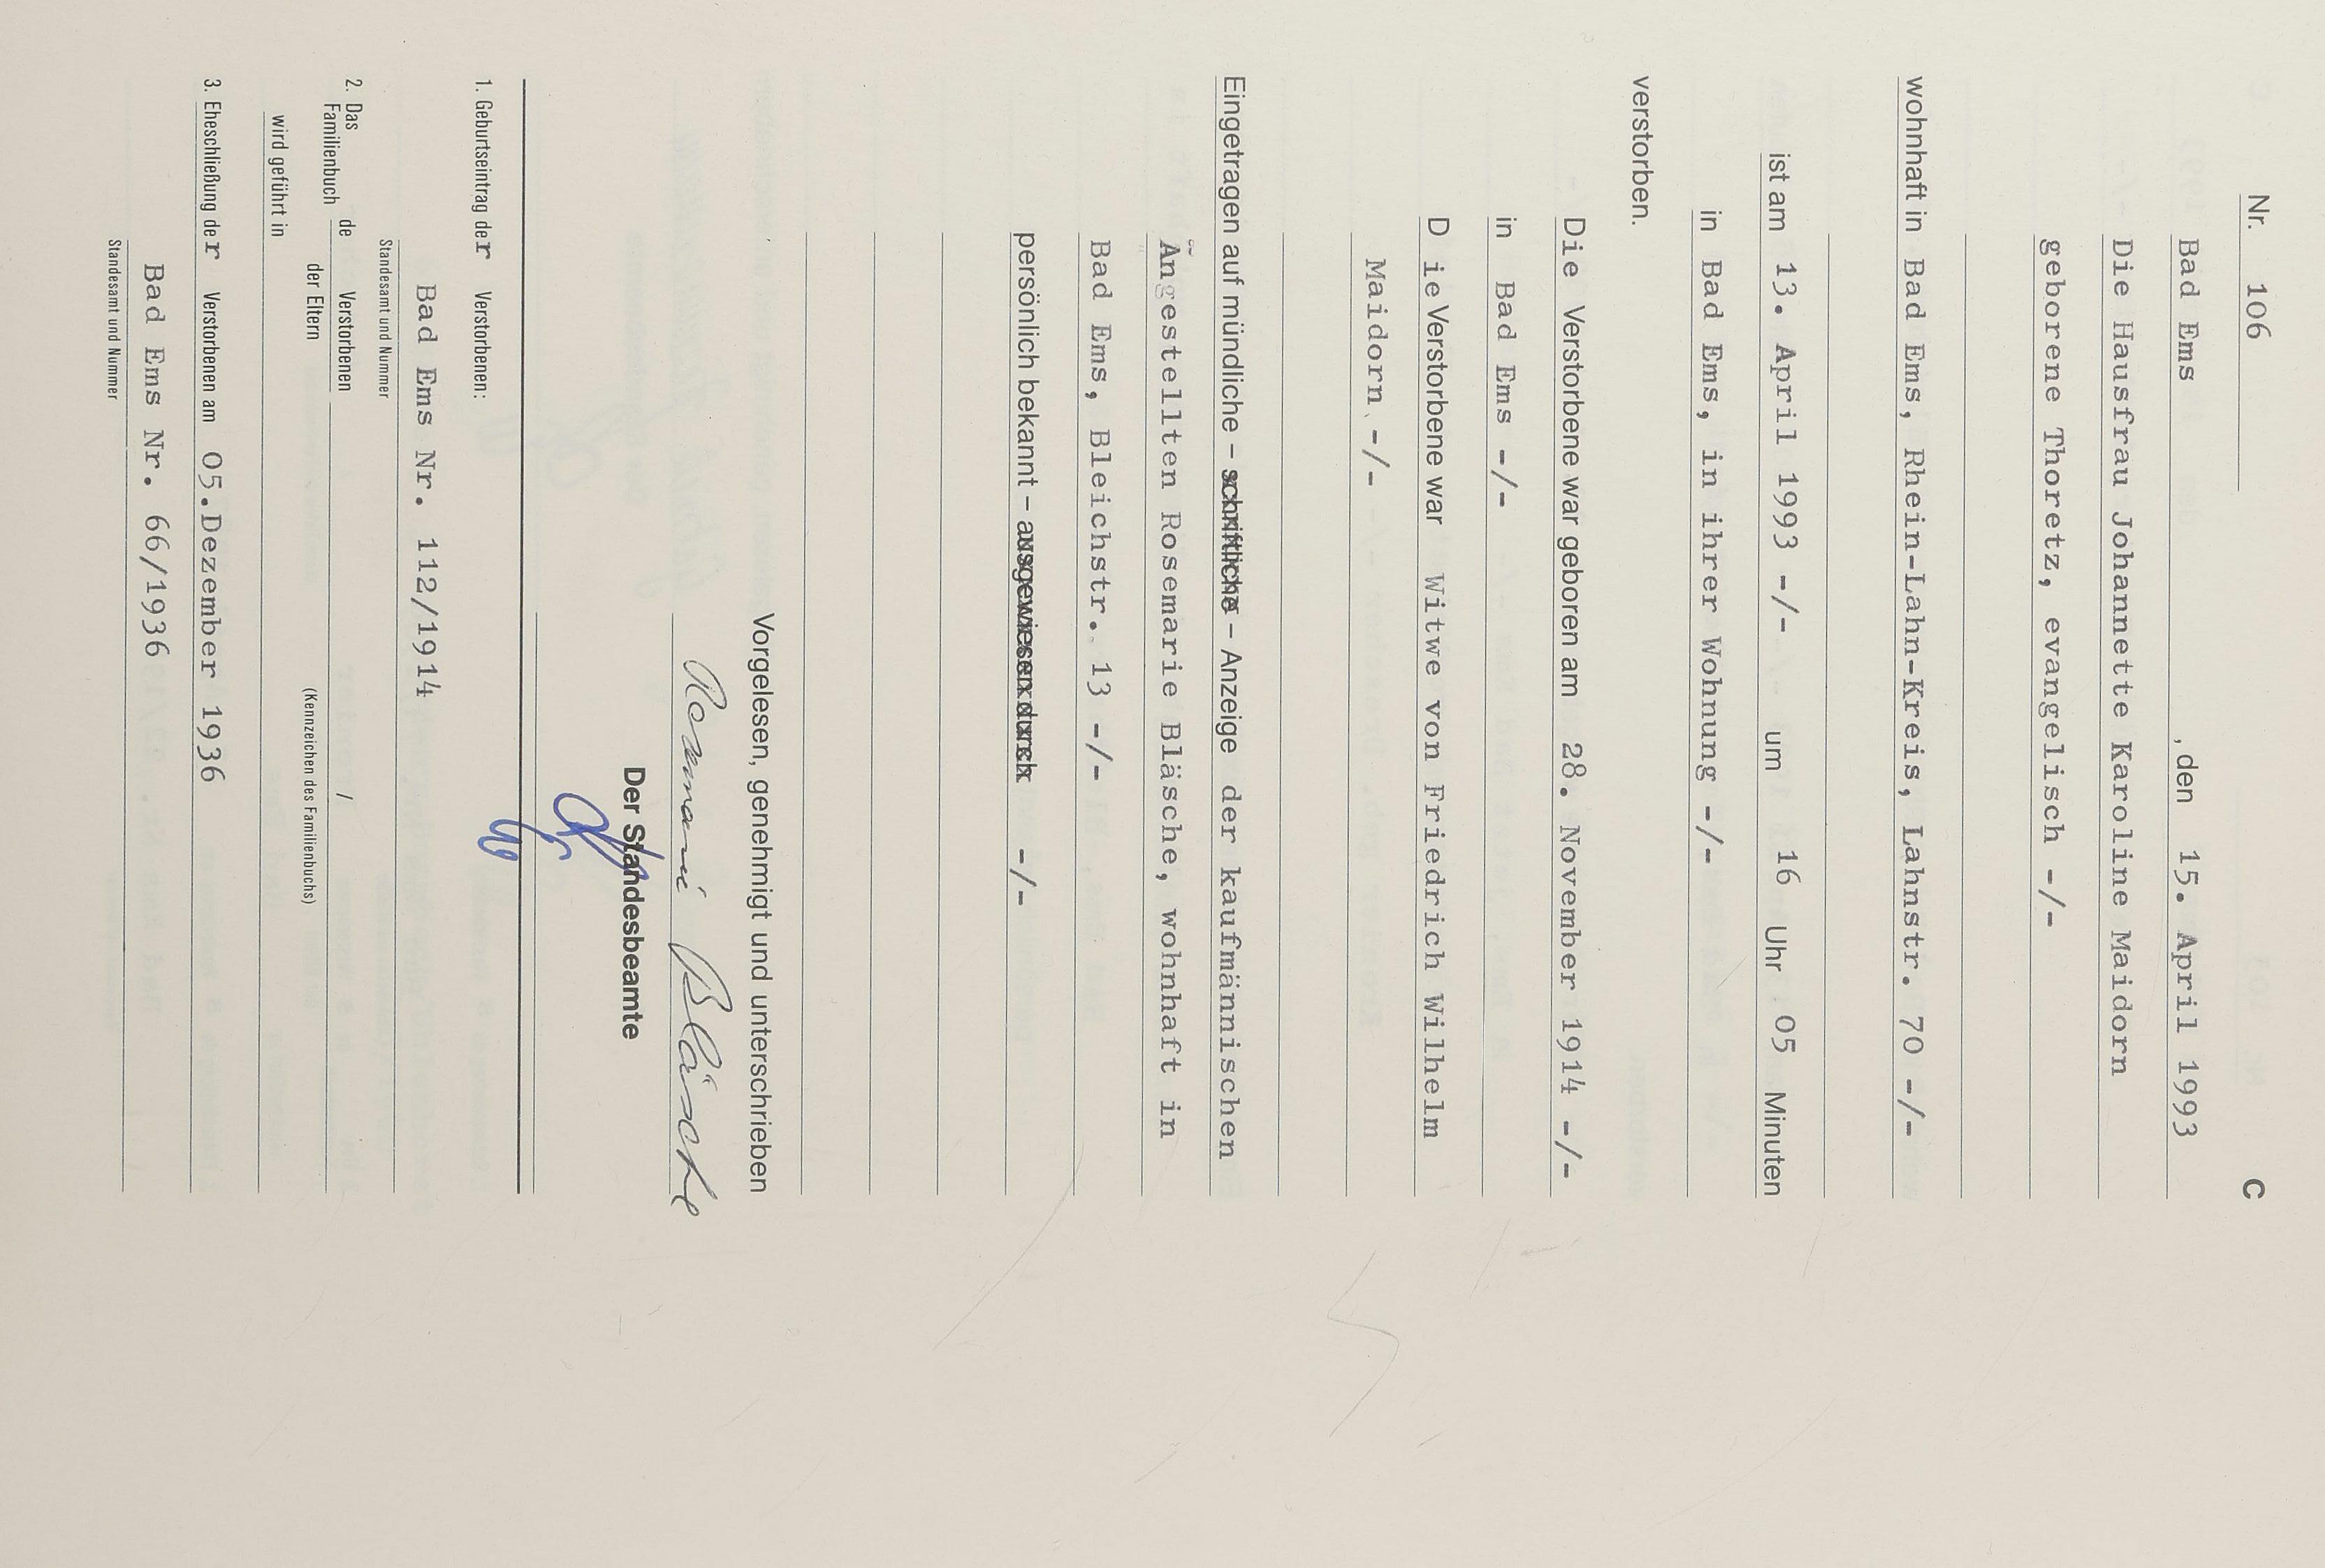 Nr. 106 C
Bad Ems , den 15. April 1993
Die Hausfrau Johannette Karoline Maidorn
geborene Thoretz, evangelisch -/-
wohnhaft in Bad Ems, Rhein-Lahn-Kreis, Lahnstr. 70 -/-
ist am 13. April 1993 -/- um 16 Uhr 05 Minuten
in Bad Ems, in ihrer Wohnung -/-
verstorben.
Die Verstorbene war geboren am 28. November 1914 -/-
in Bad Ems -/-
D ie Verstorbene war Witwe von Friedrich Wilhelm
Maidorn -/-
Eingetragen auf mündliche – schriftliche – Anzeige der kaufmännischen
Angestellten Rosemarie Bläsche, wohnhaft in
Bad Ems, Bleichstr. 13 -/-
persönlich bekannt – ausgewiesen durch -/-
Vorgelesen, genehmigt und unterschrieben
Rosemarie Bläsche
Der Standesbeamte
1. Geburtseintrag der Verstorbenen:
Bad Ems Nr. 112/1914
Standesamt und Nummer
2. Das Familienbuch de Verstorbenen der Eltern /
(Kennzeichen des Familienbuchs)
wird geführt in
3. Eheschließung der Verstorbenen am 05.Dezember 1936
Bad Ems Nr. 66/1936
Standesamt und Nummer